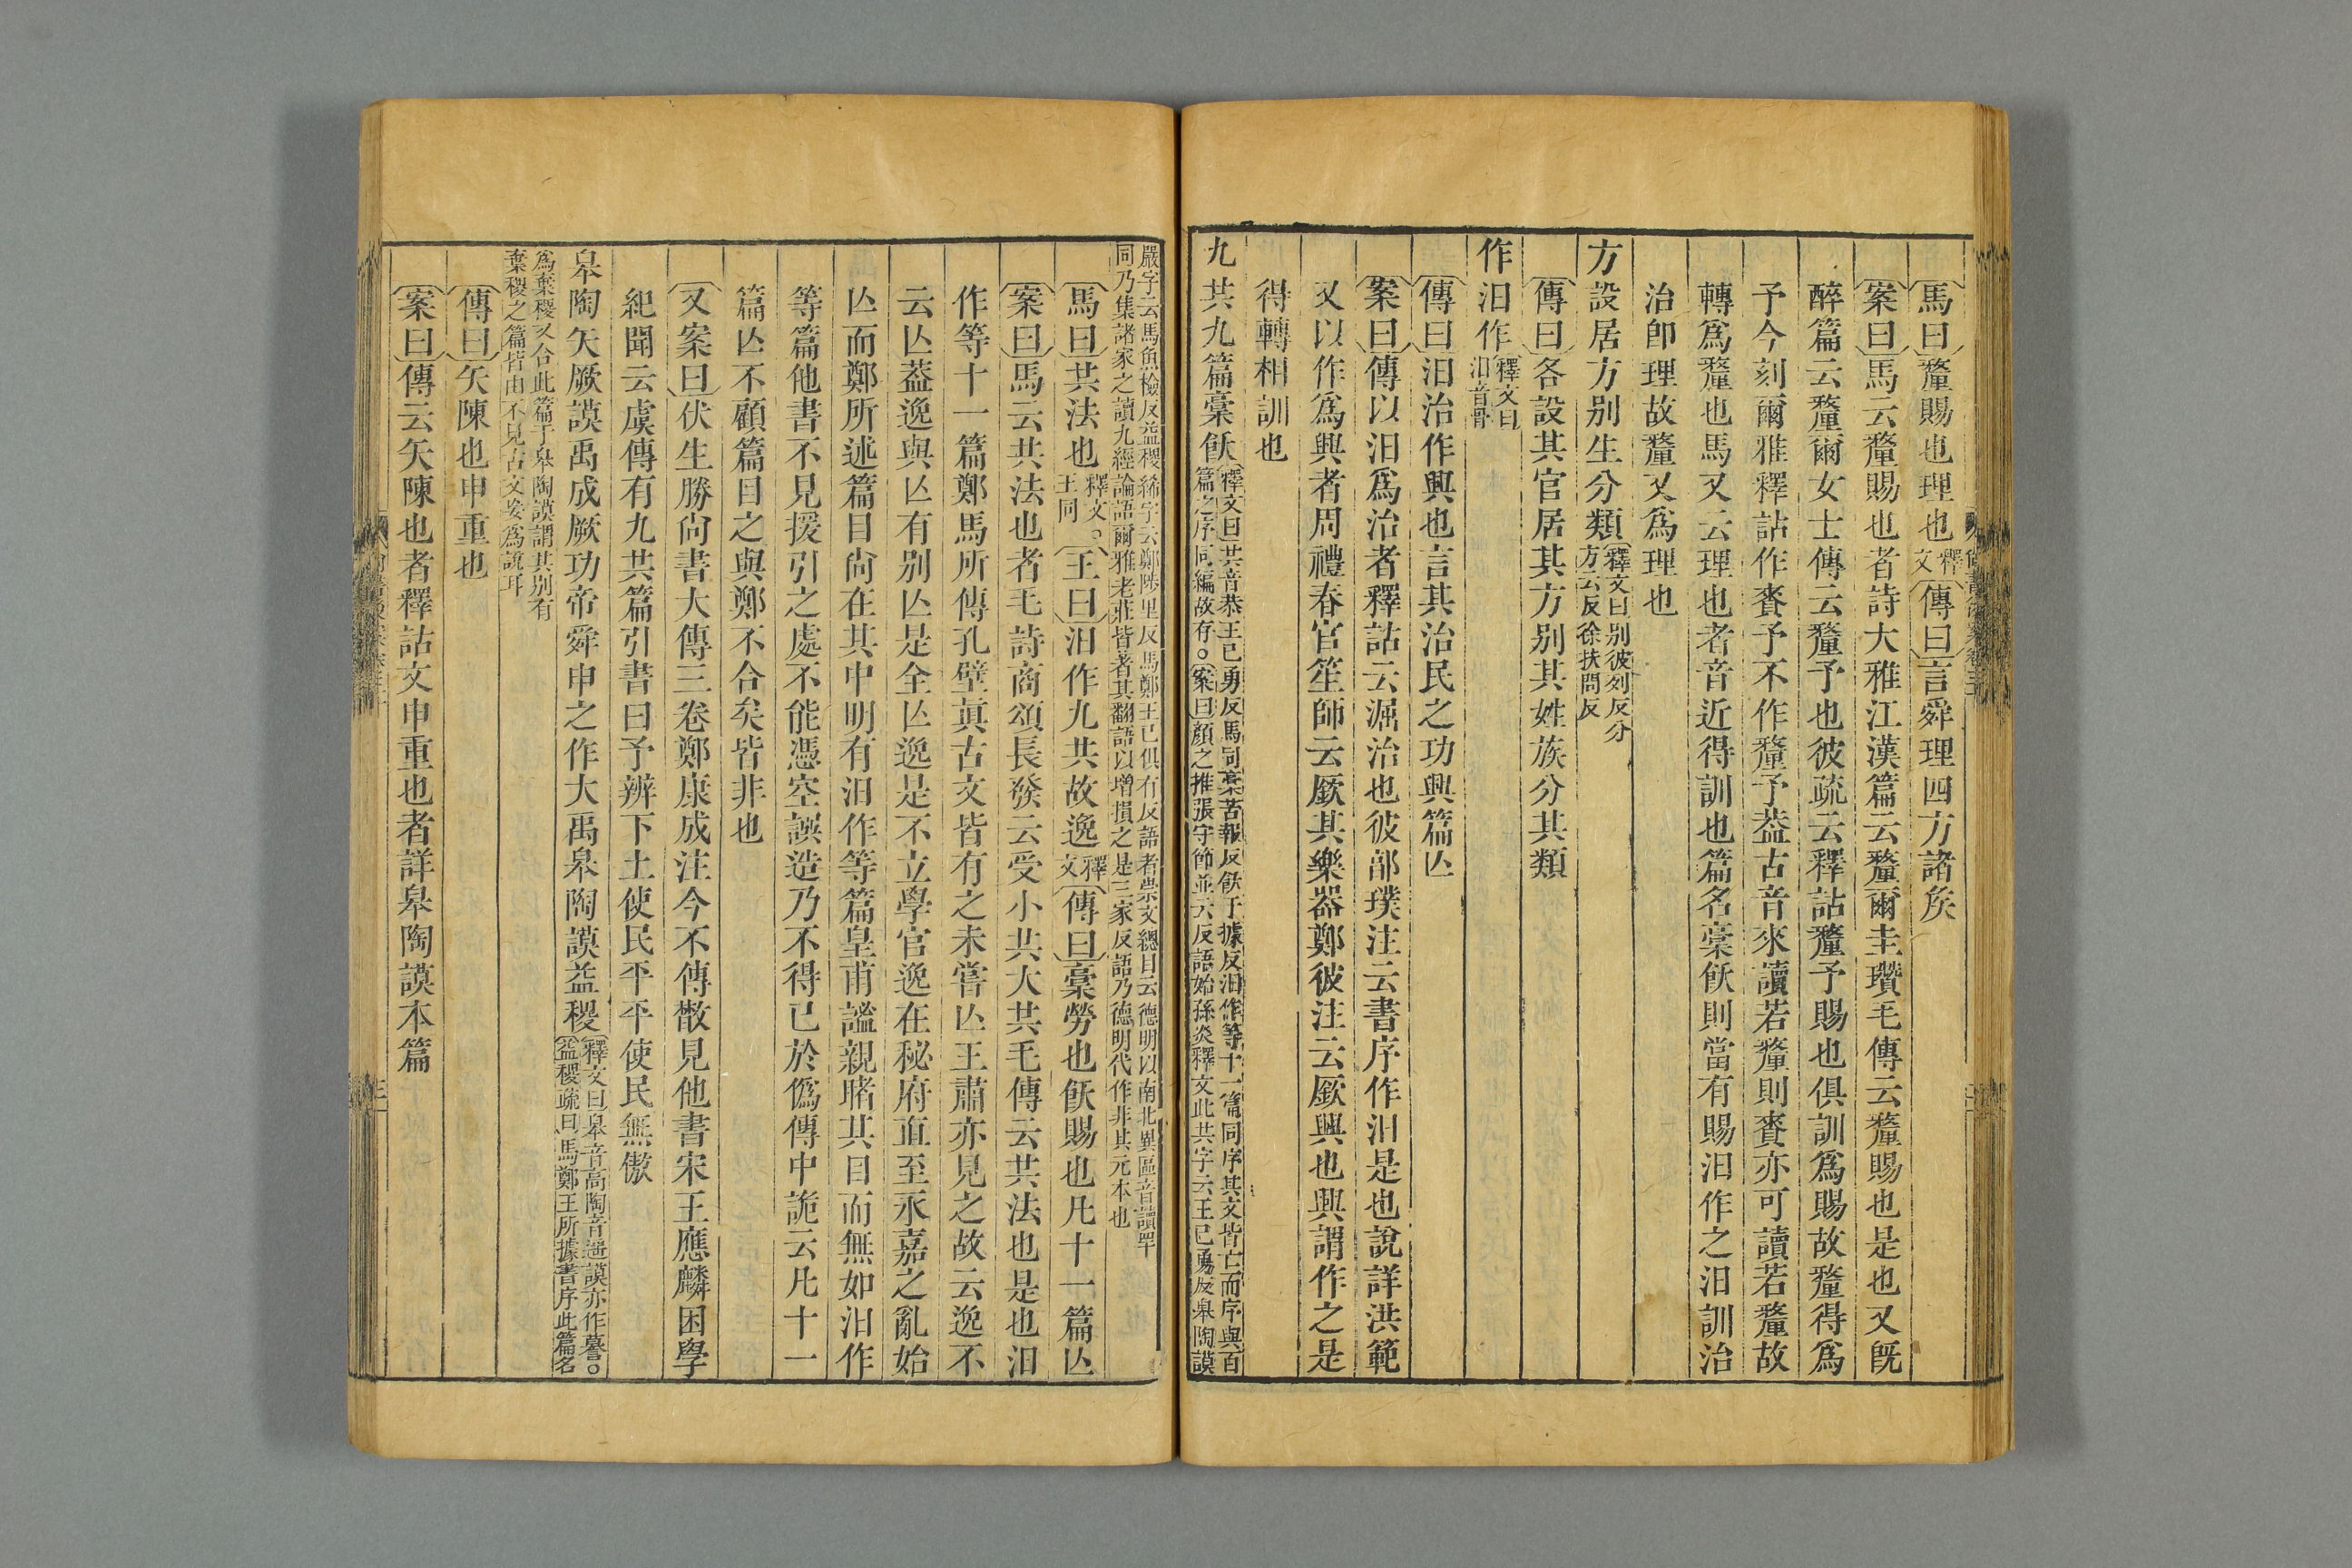 馬曰釐賜也理也釋文傳曰言舜理四方諸矦
案曰馬云釐賜也者詩大雅江漢篇云釐爾圭瓚毛傳云釐賜也是也又旣
醉篇云釐爾女士傳云釐予也彼疏云釋詁釐予賜也俱訓爲賜故釐得爲
予今刻爾雅釋詁作賚予不作釐予葢古音來讀若釐則賚亦可讀若釐故
轉爲釐也馬又云理也者音近得訓也篇名槀飫則當有賜汨作之汨訓治
治卽理故釐又爲理也
方設居方別生分類釋文曰別彼列反分方云反徐扶問反
傳曰各設其官居其方別其姓族分其類
作汨作釋文曰汨音骨
傳曰汨治作興也言其治民之功興篇亾
案曰傳以汨爲治者釋詁云淈治也彼郭璞注云書序作汨是也說詳洪範
又以作爲興者周禮春官笙師云廞其樂器鄭彼注云廞興也興謂作之是
得轉相訓也
九共九篇槀飫釋文曰共音恭王己勇反馬同槀苦報反飫于據反汨作等十一篇同序其文皆亡而序與百篇之序同編故存。案曰顏之推張守節並云反語始孫炎釋文此共字云王己勇反皐陶謨
嚴字云馬魚檢反益稷絺字云鄭陟里反馬鄭王已俱有反語者崇文總目云德明以南北異區音讀罕同乃集諸家之讀九經論語爾雅老莊皆著其翻語以增損之是三家反語乃德明代作非其元本也
馬曰共法也釋文。王同王曰汨作九共故逸釋文傳曰槀勞也飫賜也凡十一篇亾
案曰馬云共法也者毛詩商頌長發云受小共大共毛傳云共法也是也汨
作等十一篇鄭馬所傳孔壁眞古文皆有之未嘗亾王肅亦見之故云逸不
云亾葢逸與亾有別亾是全亾逸是不立學官逸在秘府直至永嘉之亂始
亾而鄭所述篇目尙在其中明有汨作等篇皇甫謐親睹其目而無如汨作
等篇他書不見援引之處不能憑空譔造乃不得已於僞傳中詭云凡十一
篇亾不顧篇目之與鄭不合矣皆非也
又案曰伏生勝尙書大傳三卷鄭康成注今不傳散見他書宋王應麟困學
紀聞云虞傳有九共篇引書曰予辨下土使民平平使民無傲
皐陶矢厥謨禹成厥功帝舜申之作大禹皐陶謨益稷釋文曰皐音高陶音遥謨亦作暮。益稷疏曰馬鄭王所據書序此篇名
爲棄稷又合此篇于皐陶謨謂其別有棄稷之篇皆由不見古文妄爲說耳
傳曰矢陳也申重也
案曰傳云矢陳也者釋詁文申重也者詳皐陶謨本篇